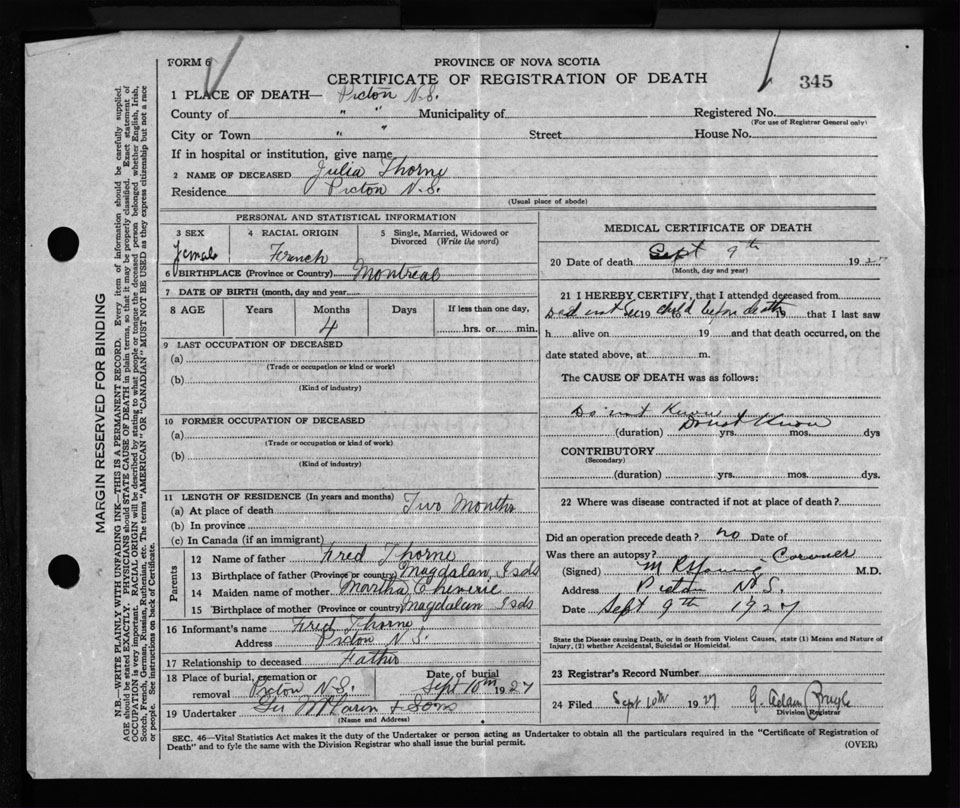 FORM 6
PROVINCE OF NOVA SCOTIA
CERTIFICATE OF REGISTRATION OF DEATH
345
1 PLACE OF DEATH— Picton N.S.
County of " " Municipality of Registered No.
(For use of Registrar General only)
City or Town " " Street House No.
If in hospital or institution, give name
2 NAME OF DECEASED Julia Thorne
Residence Picton N.S.
(Usual place of abode)
PERSONAL AND STATISTICAL INFORMATION
3 SEX 4 RACIAL ORIGIN 5 Single, Married, Widowed or Divorced (Write the word)
Female French
6 BIRTHPLACE (Province or Country) Montreal
7 DATE OF BIRTH (month, day and year)
8 AGE Years Months Days If less than one day,
4 hrs. or min.
9 LAST OCCUPATION OF DECEASED
(a)
(Trade or occupation or kind or work)
(b)
(Kind of industry)
10 FORMER OCCUPATION OF DECEASED
(a)
(Trade or occupation or kind of work)
(b)
(Kind of industry)
11 LENGTH OF RESIDENCE (In years and months)
(a) At place of death Two Months
(b) In province
(c) In Canada (if an immigrant)
Parents
12 Name of father Fred Thorne
13 Birthplace of father (Province or country) Magdalan Isds
14 Maiden name of mother Martha Cheverie
15 Birthplace of mother (Province or country) Magdalan Isds
16 Informant's name Fred Thorne
Address Picton N.S.
17 Relationship to deceased Father
18 Place of burial, cremation or removal Picton N.S. Date of burial Sept 10th 1927
19 Undertaker McLarin & Sons
(Name and Address)
MEDICAL CERTIFICATE OF DEATH
20 Date of death Sept 9th 1927
(Month, day and year)
21 I HEREBY CERTIFY, that I attended deceased from
Did not see 19 child before death 19 that I last saw
h alive on 19 and that death occurred, on the
date stated above, at m.
The CAUSE OF DEATH was as follows:
Do'nt Know
(duration) Do not Know yrs. mos. dys
CONTRIBUTORY
(Secondary)
(duration) yrs. mos. dys.
22 Where was disease contracted if not at place of death?
Did an operation precede death? no Date of
Was there an autopsy? Coroner
(Signed) M R Young M.D.
Address Picton N.S.
Date Sept 9th 1927
State the Disease causing Death, or in death from Violent Causes, state (1) Means and Nature of
Injury, (2) whether Accidental, Suicidal or Homicidal.
23 Registrar's Record Number
24 Filed Sept 10th 1927 G. Adam
Division Registrar
SEC. 46—Vital Statistics Act makes it the duty of the Undertaker or person acting as Undertaker to obtain all the particulars required in the "Certificate of Registration of
Death" and to fyle the same with the Division Registrar who shall issue the burial permit.
(OVER)
MARGIN RESERVED FOR BINDING
N.B.—WRITE PLAINLY WITH UNFADING INK—THIS IS A PERMANENT RECORD. Every item of information should be carefully supplied.
AGE should be stated EXACTLY. PHYSICIANS should STATE CAUSE OF DEATH in plain terms, so that it may be properly classified. Exact statement of
OCCUPATION is very important. RACIAL ORIGIN will be described by stating to what people or tongue the deceased person belonged whether English, Irish,
Scotch, French, German, Russian, Ruthenian, etc. The terms "AMERICAN" OR "CANADIAN" MUST NOT BE USED as they express citizenship but not a race
or people. See instructions on back of Certificate.